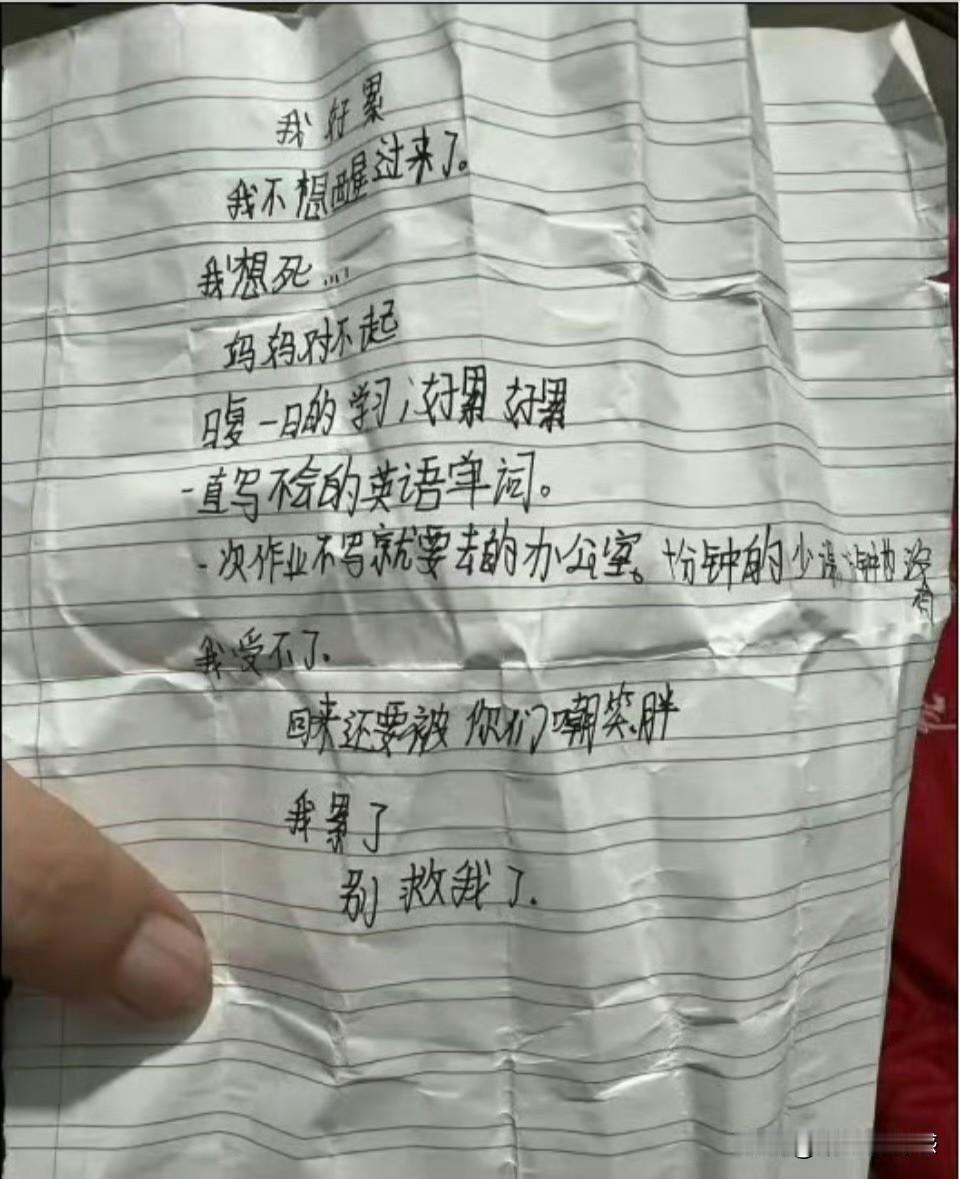 我好累
我不想醒过来了。
我想死...
妈妈对不起
日复一日的学习，好累 好累
一直写不会的英语单词。
一次作业不写就要去的办公室。十分钟的少 钟的没有
我受不了.
回来还要被 你们嘲笑胖
我累了
别 救我了.